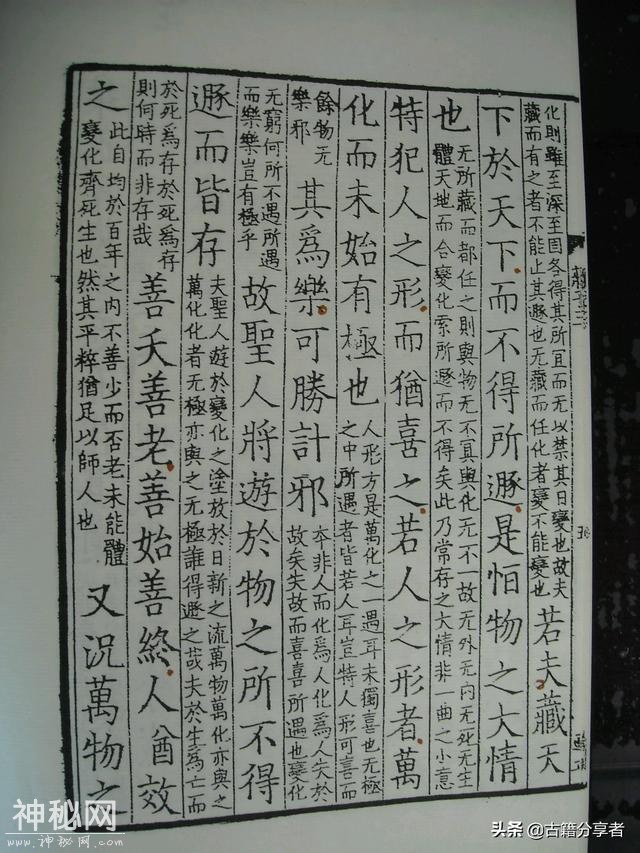 化則雖至深至固各得其所宜而无以禁其日變也故夫
藏而有之者不能止其遯也无藏而任化者變不能變也
若夫藏天
下於天下而不得所遯是恒物之大情
也
无所藏而都任之則與物无不冥與化无不一故无外无内无死无生
體天地而合變化索所遯而不得矣此乃常存之大情非一曲之小意
特犯人之形而猶喜之若人之形者萬
化而未始有極也
人形方是萬化之一遇耳未獨喜也无極
之中所遇者皆若人耳豈特人形可喜而
餘物无
樂邪
其爲樂可勝計邪
本非人而化爲人化爲人失於
故矣失故而喜喜所遇也變化
无窮何所不遇所遇
而樂樂豈有極乎
故聖人將遊於物之所不得
遯而皆存
夫聖人遊於變化之塗放於日新之流萬物萬化亦與之
萬化化者无極亦與之无極誰得遯之哉夫於生爲亡而
於死爲存於死爲存
則何時而非存哉
善夭善老善始善終人猶效
之
此自均於百年之内不善少而否老未能體
變化齊死生也然其平粹猶足以師人也
又況萬物之
神秘网
www.神秘网.com
头条 @古籍分享者